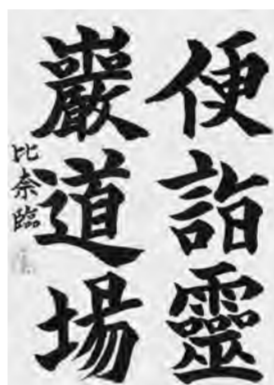 便詣靈
巖道場
比奈臨